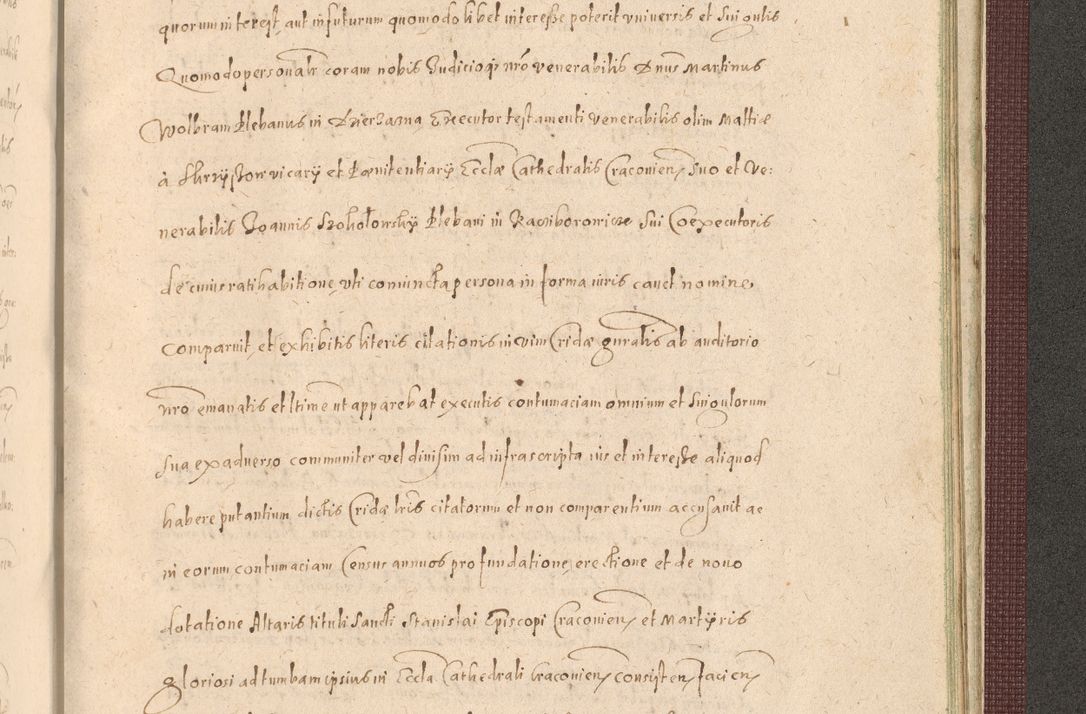 quorum interest, aut in futurum quomodolibet interesse poterit universis et singulis
Quomodo personalr coram nobis Judicioq; nro venerabilis Dnus Martinus
Wolbram Plebanus in Executor testamenti venerabilis olim Matthiæ
à vicarÿ et PœnitentiarÿEcclæ Cathedralis Cracovien, suo et Ve:
nerabilis Joannis Plebani in sui Coexecutoris
de cuius ratihabitione, uti coniuncta persona in forma iuris cavet nomine,
Comparuit, et exhibitis literis citationis in vim Cridæ gnralis ab auditorio
nro emanatis et ltime ut apparebat executis contumaciam omnium et singulorum
sua ex adverso communiter vel divisim ad infrascripta ius et interesse aliquod
habere putantium, dictis Cridæ lris citatorum et non comparentium accusavit ac
in eorum contumaciam Census annuos pro fundatione, erectione et de novo
dotatione Altaris tituli Sancti Stanislai Episcopi Cracovien, et Martÿris
gloriosi ad tumbam ipsius in Eccla Cathedrali Cracovien, consisten, facien,